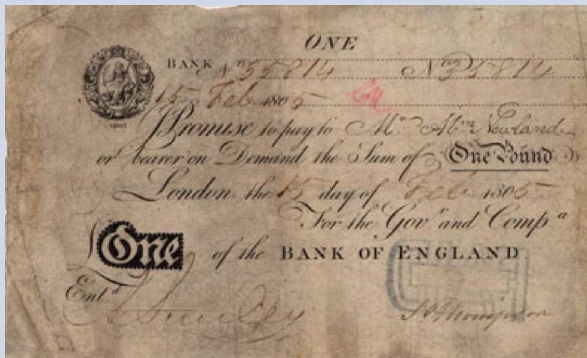 ONE
BANK No 35814 No 35814
15 Feb 1805
Promise to pay to Mr. Abm Newland
or bearer on Demand the Sum of One Pound
London the 15 day of Feb 1805
For the Govr and Compa
One of the BANK OF ENGLAND
Entd